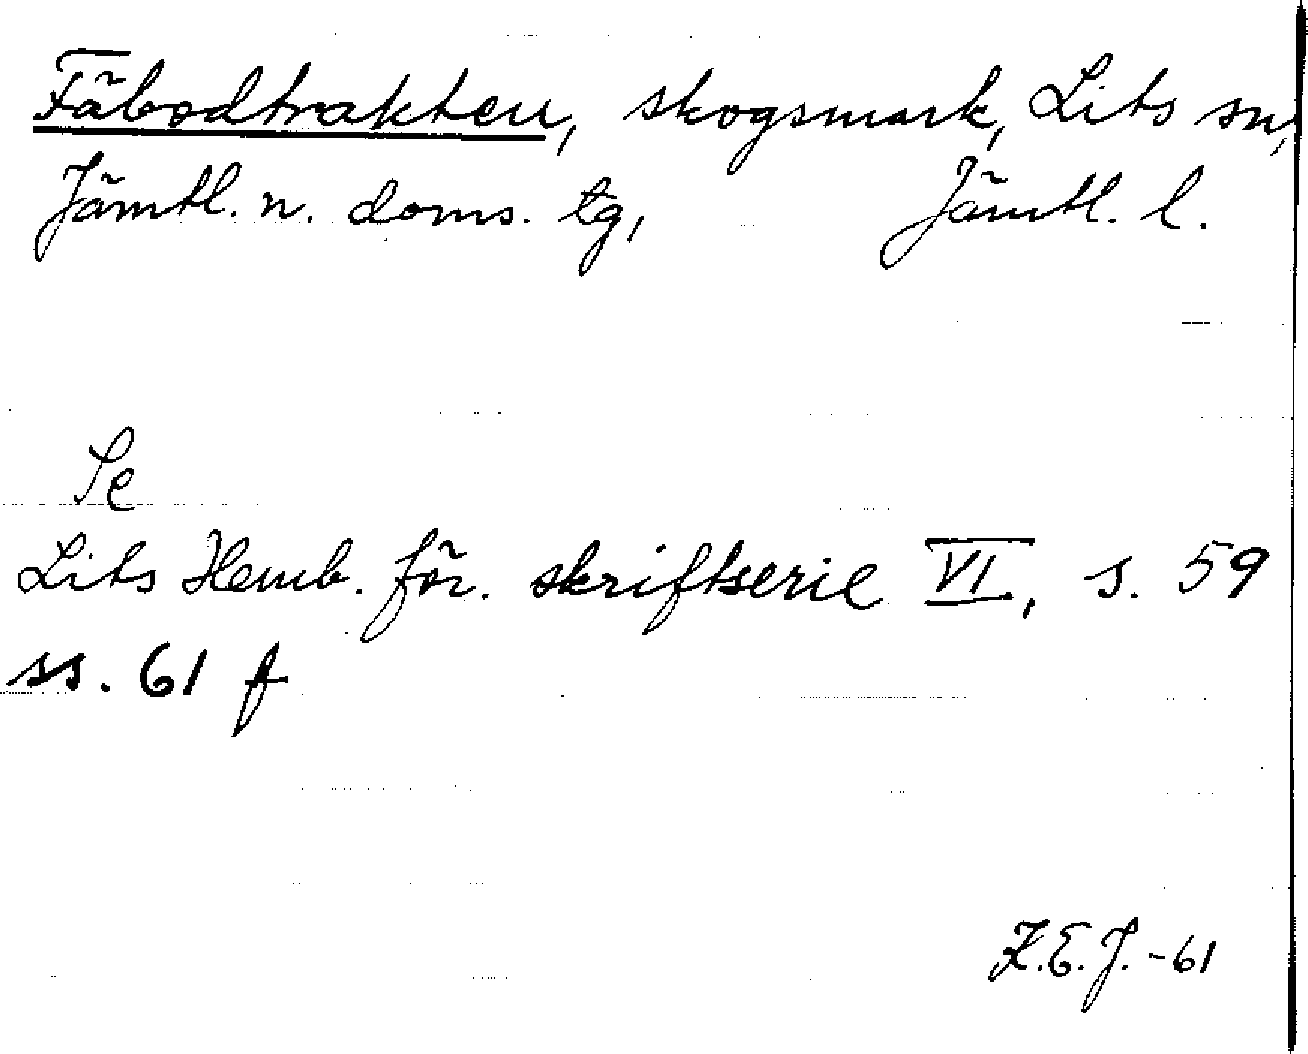 Fäbodtrakten, skogsmark, Lits sn,
Jämtl. n. doms. tg, Jämtl. l.
Se
Lits Hemb. för. skriftserie VI, s. 59
ss. 61 f
K.E.J. -61